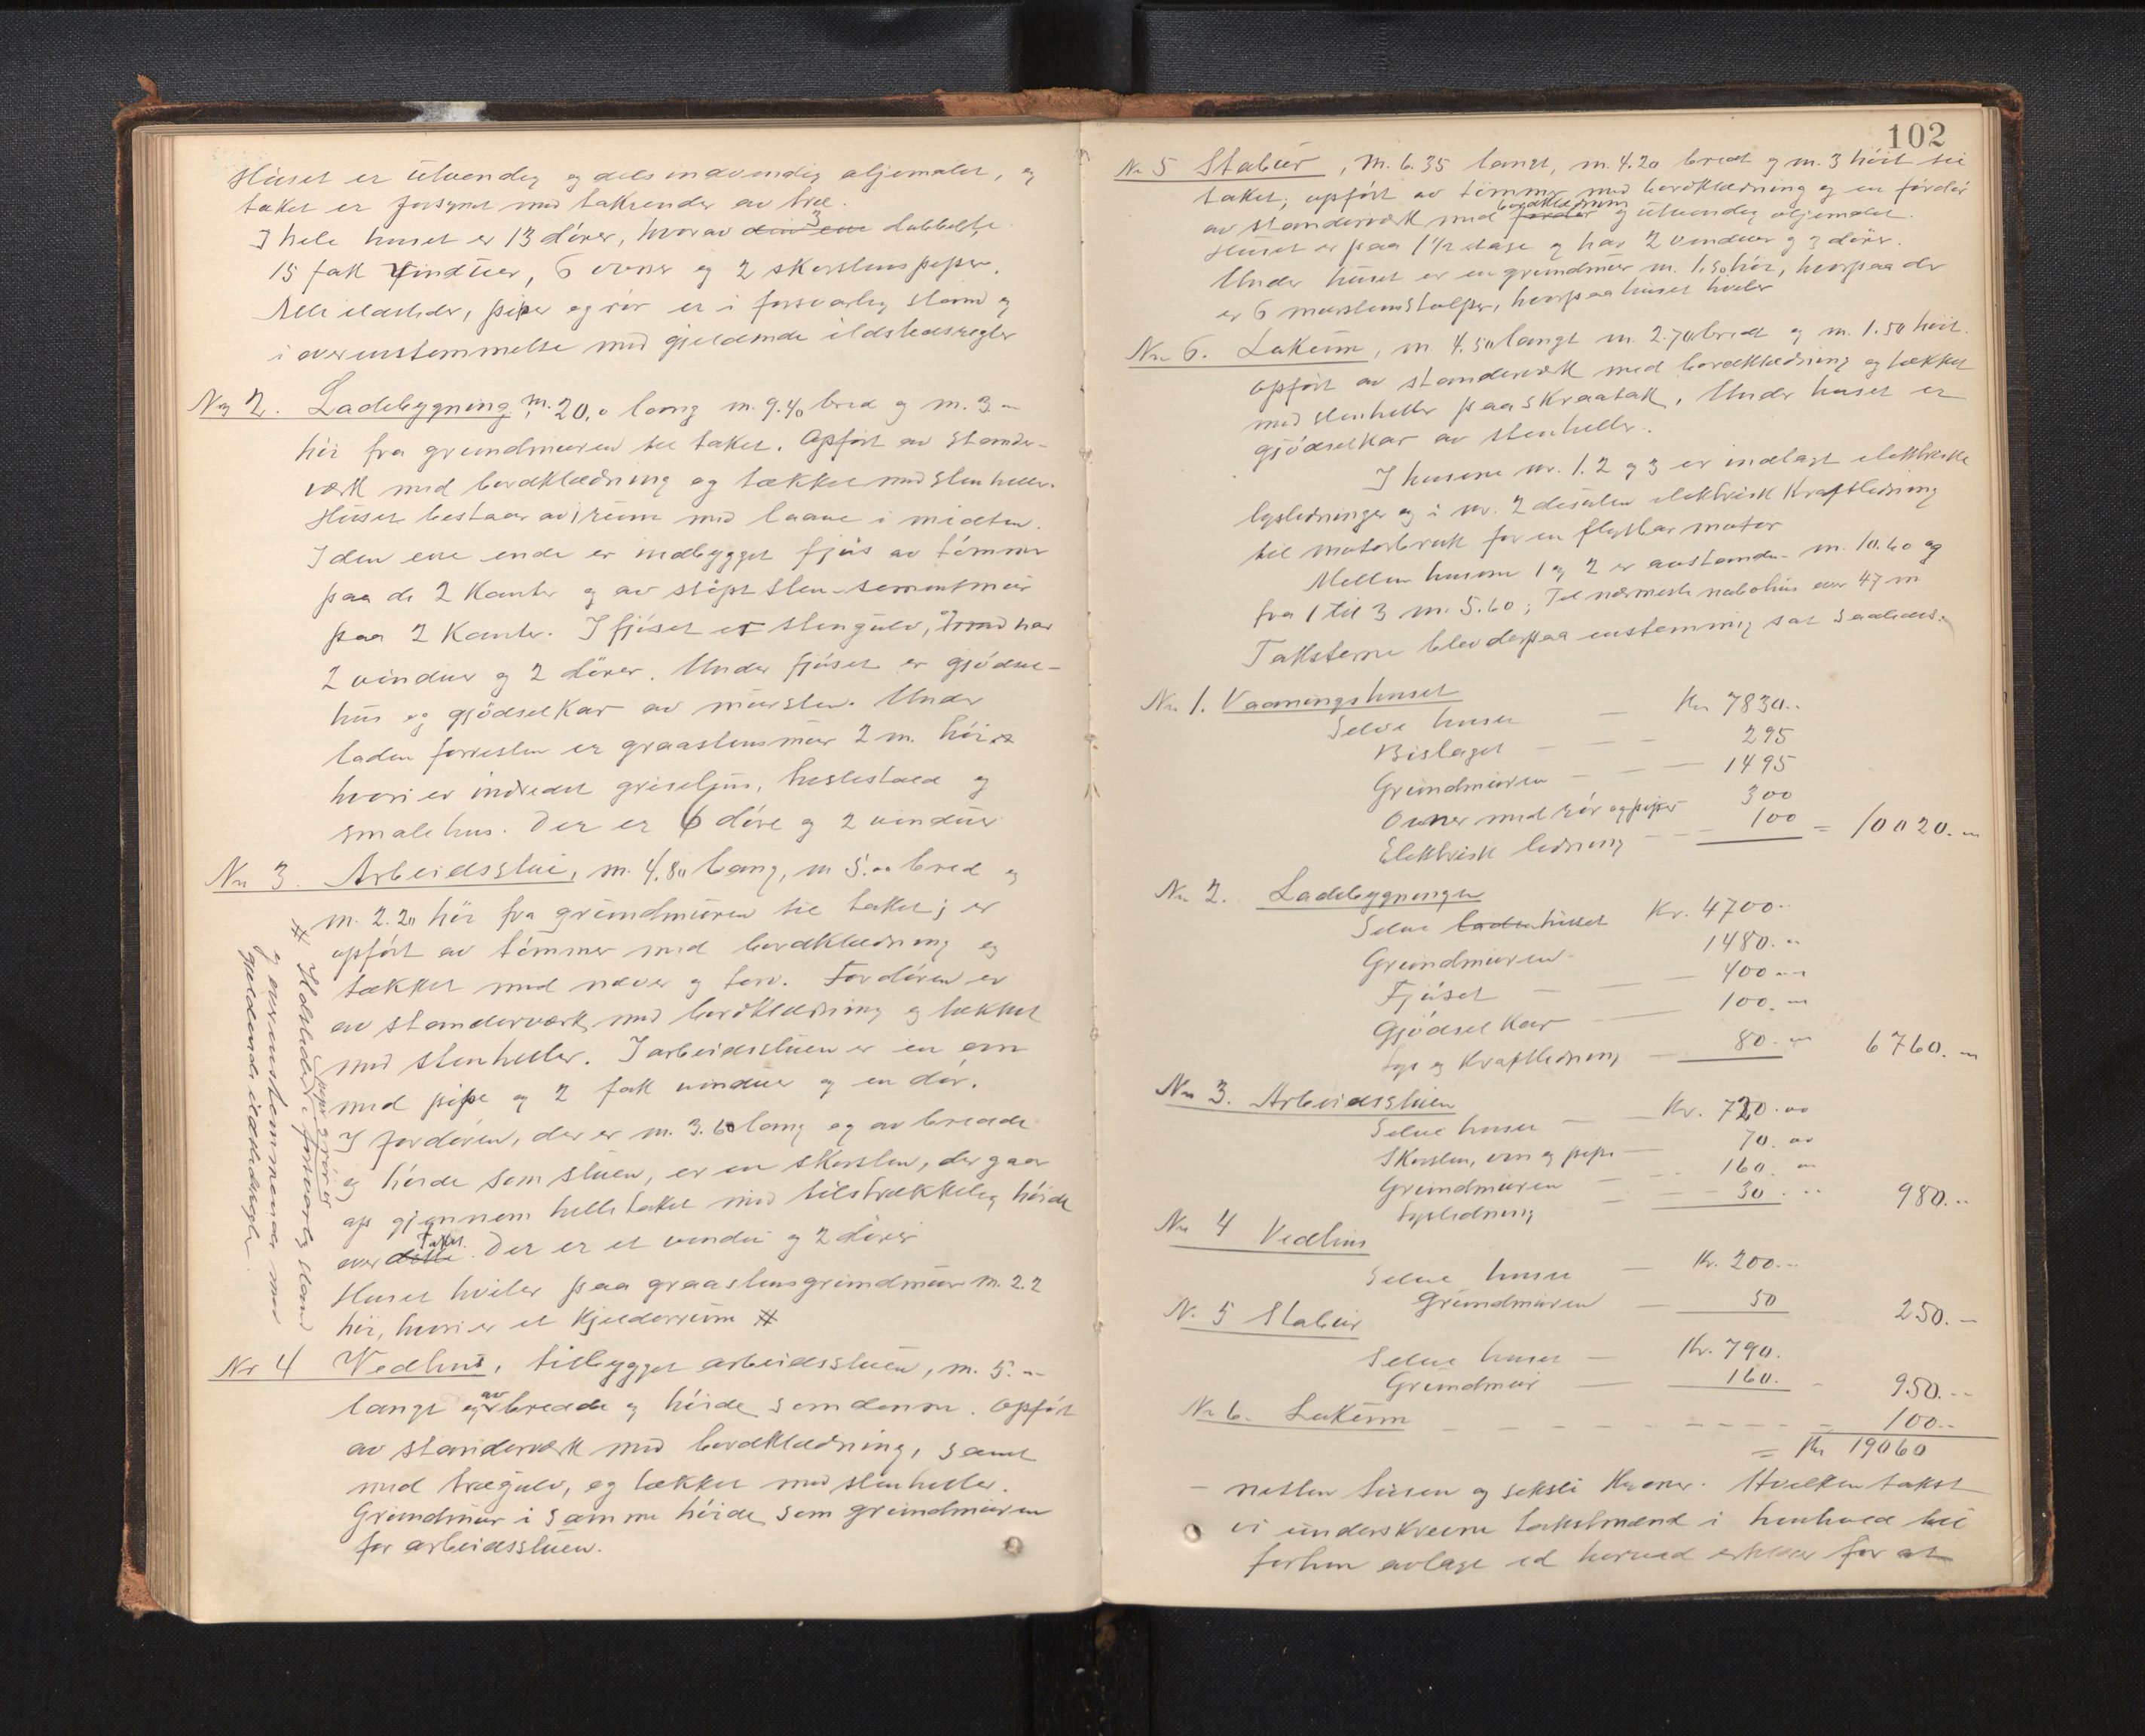 Huset er utvendig og dels indvendig oljemalet, og
taket er forsynet med takrender av træ.
I hele huset er 13 dörer, hvorav 3 dobbelte
15 fak vinduer, 6 ovner og 2 skorstenspiper.
Alle ildsteder, piper og rör er i forsvarlig stand og
i overenstemmelse med gjeldende ildstedsregler
No 2. Ladebygning, m. 20,0 lang m. 9.40 bred og m. 3.-
höi fra grundmuren til taket. Opfört av stander-
værk med bordklædning og tækket med stenheller.
Huset bestaar av 1 rum med laave i midten.
I den ene ende er indbygget fjös av tömmer
paa de 2 kanter og av stöpt sten-sementmur
paa 2 kanter. I fjöset er stengulv, og har
2 vinduer og 2 dörer. Under fjöset er gjödsel-
hus og gjödselkar av mursten. Under
laden forresten er graastensmur 2 m. höi
hvori er indredet grisehus, hestestald og
smalehus. Der er 6 döre og 2 vinduer
No 3. Arbeidsstue, m. 4.80 lang, m 5.00 bred og
m. 2.20 höi fra grundmuren til taket; er
opfört av tömmer med bordklædning og
tækket med næver og torv. Fordören er
av standerværk med bordklædning og tækket
med stenheller. I arbeidsstuen er en ovn
med pipe og 2 fak vinduer og en dör.
I fordören, der er m. 3.60 lang og av bredde
og höide som stuen, er en skorsten, der gaar
op gjennem helletaket med tilstrækkelig höide
over dette Taket. Der er et vindu og 2 dörer
Huset hviler paa graastensgrundmur m. 2.2
höi, hvori er et kjelderrum #
# Ildsteder, piper og rör er i forsvarlig stand
og overenstemmende med
gjeldende ildstedsregler.
Nr 4 Vedhus, tilbygget arbeidsstuen, m. 5.-
langt og av bredde og höide som denne. Opfört
av standerværk med bordklædning, samt
med trægulv, og tækket med stenheller.
Grundmur i samme höide som grundmuren
for arbeidsstuen.
102
No 5 Stabur, m. 6.35 langt, m. 4.20 bredt og m. 3 höit til
taket, opfört av tömmer med bordklædning og en fordör
av standerværk med fordör bordklædning og utvendig oljemalet.
Huset er paa 1 1/2 etage og har 2 vinduer og 3 dörer.
Under huset er en grundmur m. 1.50 höi, hvorpaa der
er 6 murstensstolper, hvorpaa huset hviler
No 6. Lokum, m 4.50 langt m. 2.70 bredt og m. 1.50 höit.
opfört av standerværk med bordklædning og tækket
med stenheller paa skraatak. Under huset er
gjödselkar av stenheller.
I husene nr. 1. 2 og 3 er indlagt elektriske
lysledninger og i nr. 2 desuten elektrisk kraftledning
til motorbruk for en flytbar motor
Mellem husene 1 og 2 er avstanden m. 10.60 og
fra 1 til 3 m. 5.60; Til nærmeste nabohus over 47 m
Taksterne blev derpaa enstemmig sat saaledes.
No 1. Vaaningshuset
Selve huset — Kr 7830..
Bislaget — — — 295
Grundmuren — — — 1495
Ovner med rör og piper 300
Elektrisk ledning — — — 100 = 10020.-
No 2. Ladebygningen
Selve laden huset Kr. 4700..
Grundmuren 1480.-
Fjöset — — — 400.-
Gjödselkar — 100.-
Lys og kraftledning — 80.- 6760.-
No 3. Arbeidsstuen
Selve huset — Kr. 720.00
Skorsten, ovn og pipe — 70.00
Grundmuren — — 160.-
Lysledning — — — 30... 980..
No 4 Vedhus
Selve huset — Kr. 200..
Grundmuren — 50 250.-
No. 5 Stabur
Selve huset — Kr. 790.
Grundmur — 160. - 950.--
No 6. Lokum — — — — — — — — 100.-
= Kr 19060
— nitten tusen og seksti Kroner. Hvilken takst
vi underskrevne takstmænd i henhold til
forhen avlagt ed herved erklærer for at